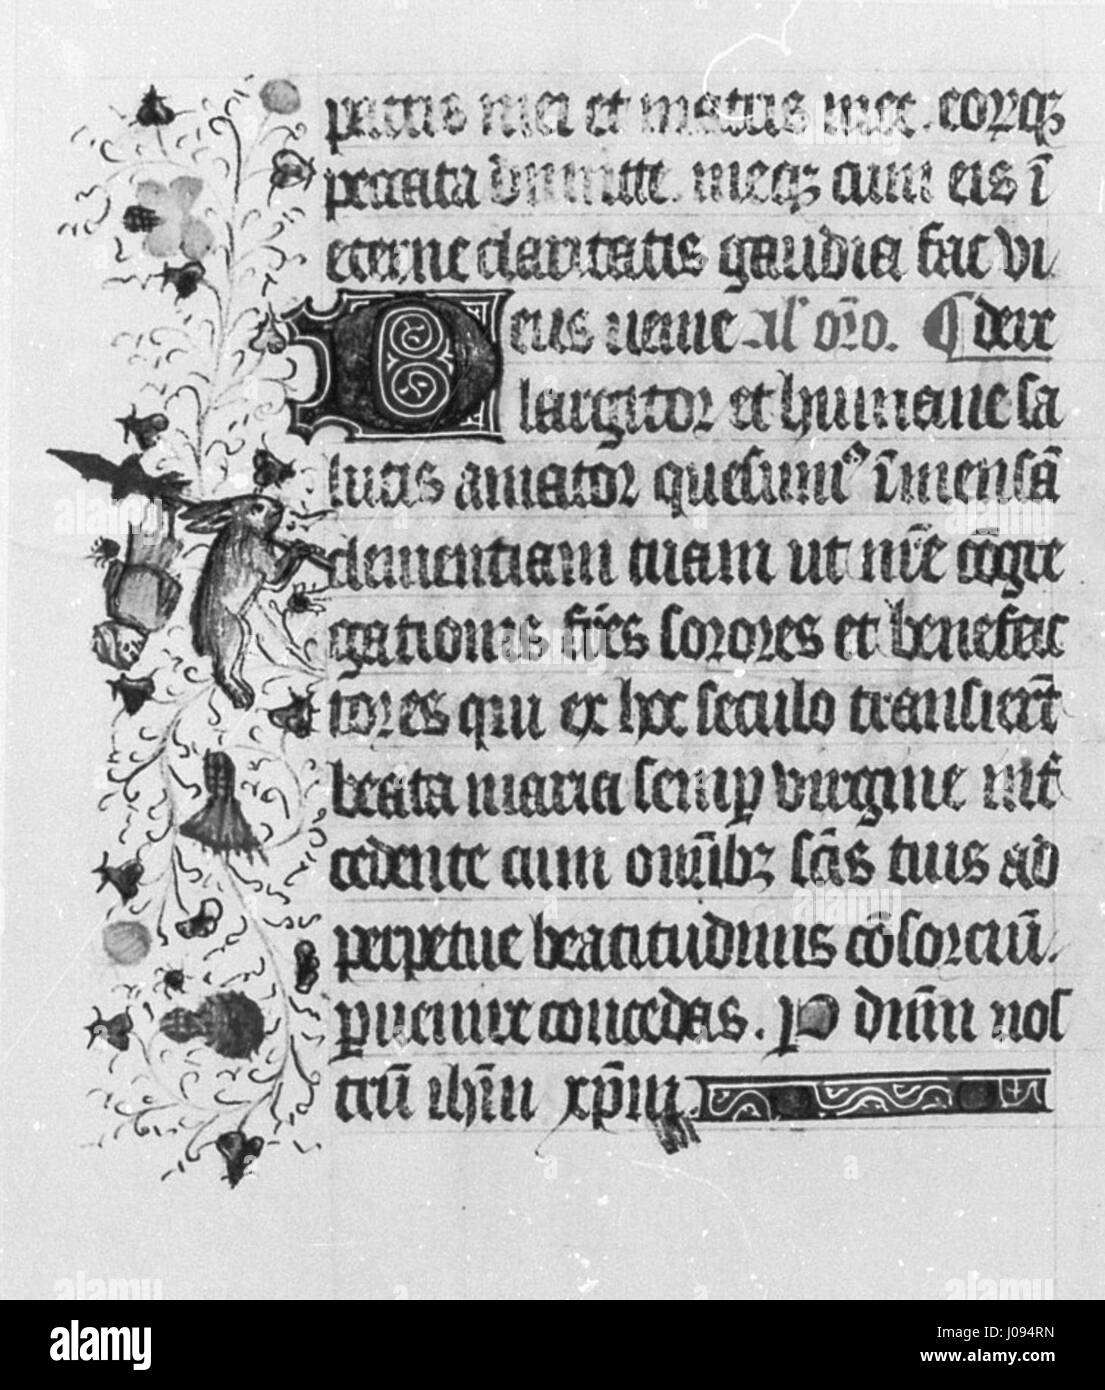 patris mei et matris mee. eorqꝫ
peccata dimitte. meqꝫ cum eis ī
eterne claritatis gaudia fac vi
Deus uenie al' oro. ¶ dere
largitor et humane sa
lutis amator quesumꝰ īmensā
clementiam tuam ut nr̄e cōgre
gationis fr̄es sorores et benefac
tores qui ex hoc seculo transierūt
beata maria semp virgine int̄
cedente cum omībꝫ scīs tuis ad
perpetue beatitudinis cōsorciū.
puenire concedas. P dnm̄ nos
trū ihm̄ xp̄m.
alamy
Image ID: J094RN
www.alamy.com